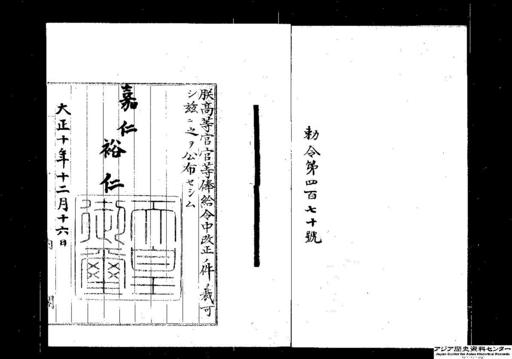 勅令第四百七十號
朕高等官官等俸給令中改正ノ件ヲ裁可
シ玆ニ之ヲ公布セシム
嘉仁
裕仁
天皇御璽
大正十年十二月十六日
内閣
アジア歴史資料センター
Japan Center for Asian Historical Records